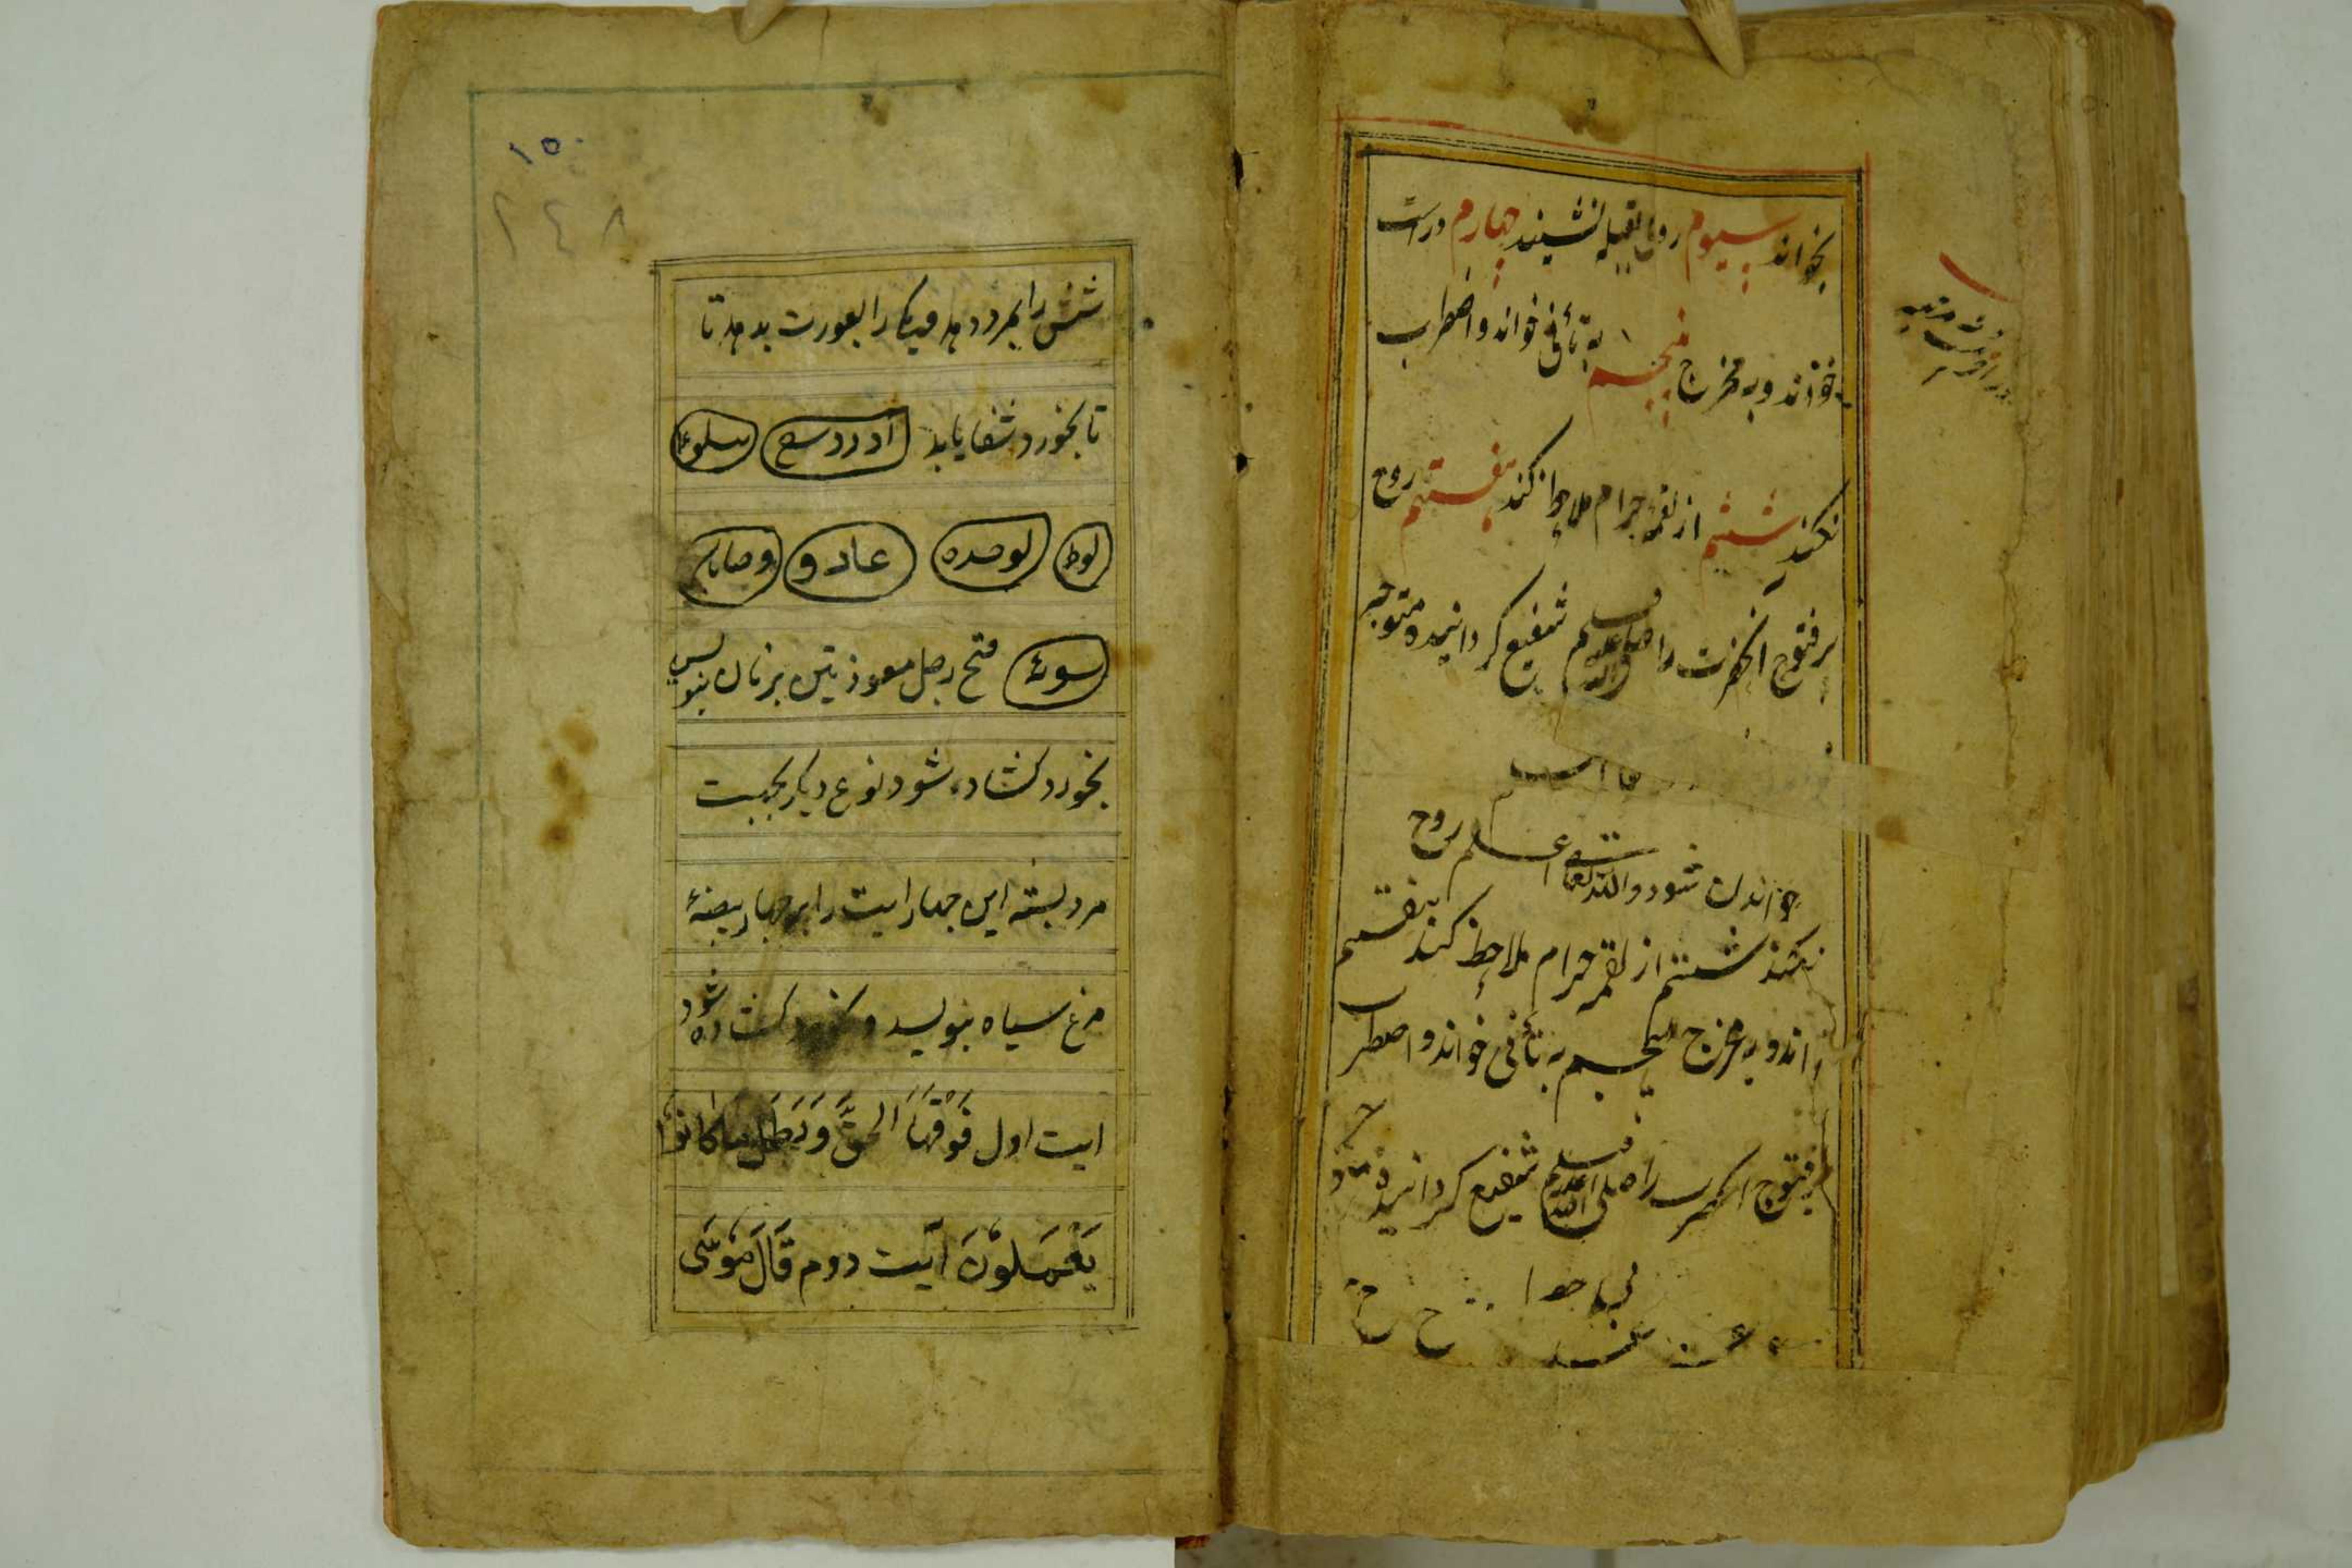 بخواند سیوم روی بقبله نشیند چهارم درست
خواند و به مخرج پنجم به تأنی خواند و اضطراب
نکند ششم از لقمه حرام ملاحظه کند هفتم روح
پرفتوح آنحضرت را صلی الله علیه وسلم شفیع گردانیده متوجه
خواندن شود والله تعالی اعلم روح
نکند ششم از لقمه حرام ملاحظه کند هفتم
خواند و به مخرج پنجم به تأنی خواند و اضطراب
پرفتوح را صلی الله علیه وسلم شفیع گردانیده
۱۵۰
۲۴۸
شش را بمرد دهد و یکرا بعورت بدهد تا
تا بخورد شفا یابد
لوط لوصده عاد و
فتح رجل معوذتین برنان بنویس
بخورد کشاده شود نوع دیگر بجهت
مرد بسته این چهار ایت را بر چهار بیضهٔ
مرغ سیاه بنویسد و کشاده شود
ایت اول فَوَقَعَ الحَقُّ وَبَطَلَ مَا كَانُوا
يَعْمَلُونَ آیت دوم قَالَ مُوسَى